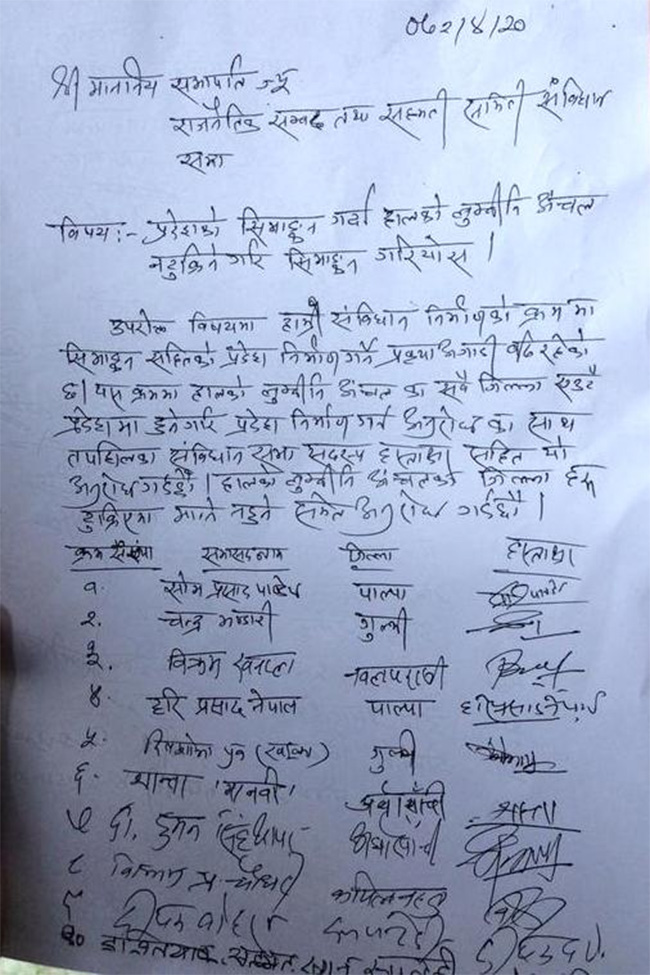 ०७२/४/२०
श्री माननीय सभापति ज्यू
राजनैतिक सम्वाद तथा सहमती समिती संविधान
सभा
विषय :- प्रदेशको सिमाङ्कन गर्दा हालको लुम्बीनि अंचल
नटुक्रिने गरि सिमाङ्कन गरियोस ।
उपरोक्त विषयमा हाम्रो संविधान निर्माणको क्रम मा
सिमाङ्कन सहितको प्रदेश निर्माण गर्ने प्रकृया अगाडी बढि रहेको
छ । यस क्रममा हालको लुम्बीनि अंचल का सवै जिल्ला एउटै
प्रदेशमा हुनेगरि प्रदेश निर्माण गर्न अनुरोध का साथ
तपशिलका संविधान सभा सदस्य हस्ताक्षर सहित यो
अनुरोध गर्दछौं । हालको लुम्बीनि अंचलको जिल्ला हरू
टुक्रिएमा मान्य नहुने समेत अनुरोध गर्दछौं ।
क्रम संख्या सभासद नाम जिल्ला हस्ताक्षर
१. सोम प्रसाद पाण्डेय पाल्पा
२. चन्द्र भण्डारी गुल्मी
३. विक्रम खनाल नवलपरासी
४ हरि प्रसाद नेपाल पाल्पा हरिप्रसाद नेपाल
५. पुन गुल्मी
६. शान्ता 'मानवी' अर्घाखाँची शान्ता
७ डा. सिंह थापा अर्घाखाँची
८ प्र. चौधरी कपिलवस्तु
९ दीपक बोहरा रुपन्देही
१०